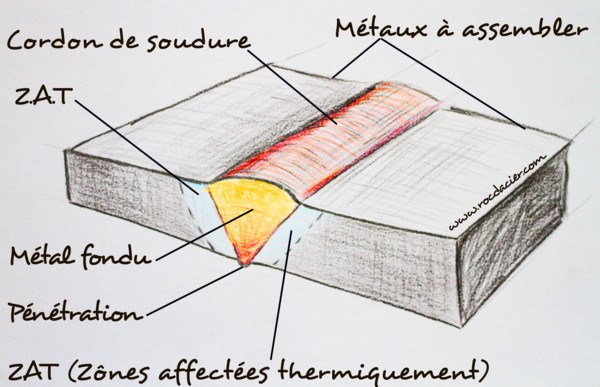 Métaux à assembler
Cordon de soudure
Z.A.T
www.rocdacier.com
Métal fondu
Pénétration
ZAT (Zônes affectées thermiquement)